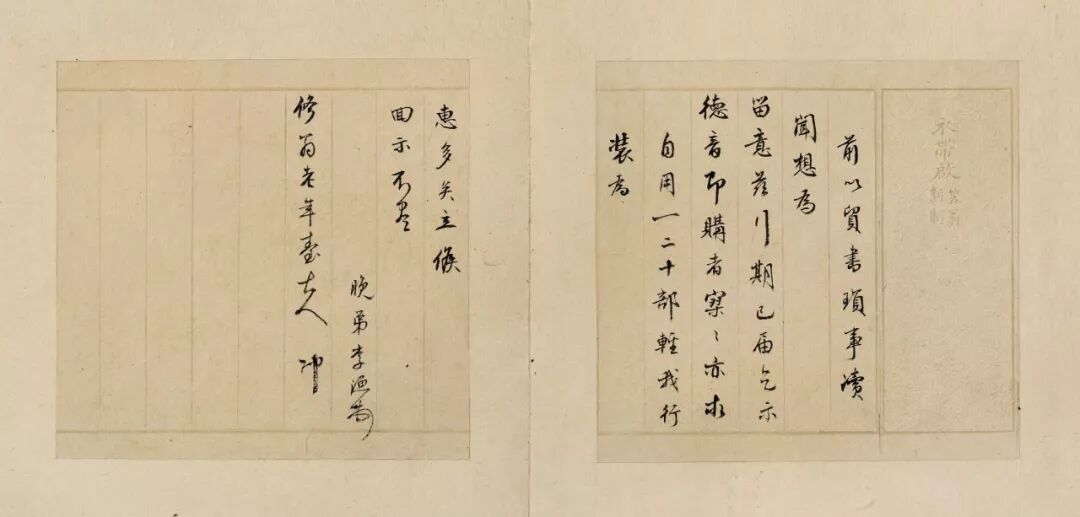 衣帶啟
笠翁
新制
前以貿書瑣事瀆
聞想為
留意茲行期已届乞示
德音即購者寥〻亦求
自用一二十部輕我行
裝為
惠多矣立候
回示不盡
晚弟李漁
修翁老年臺大人